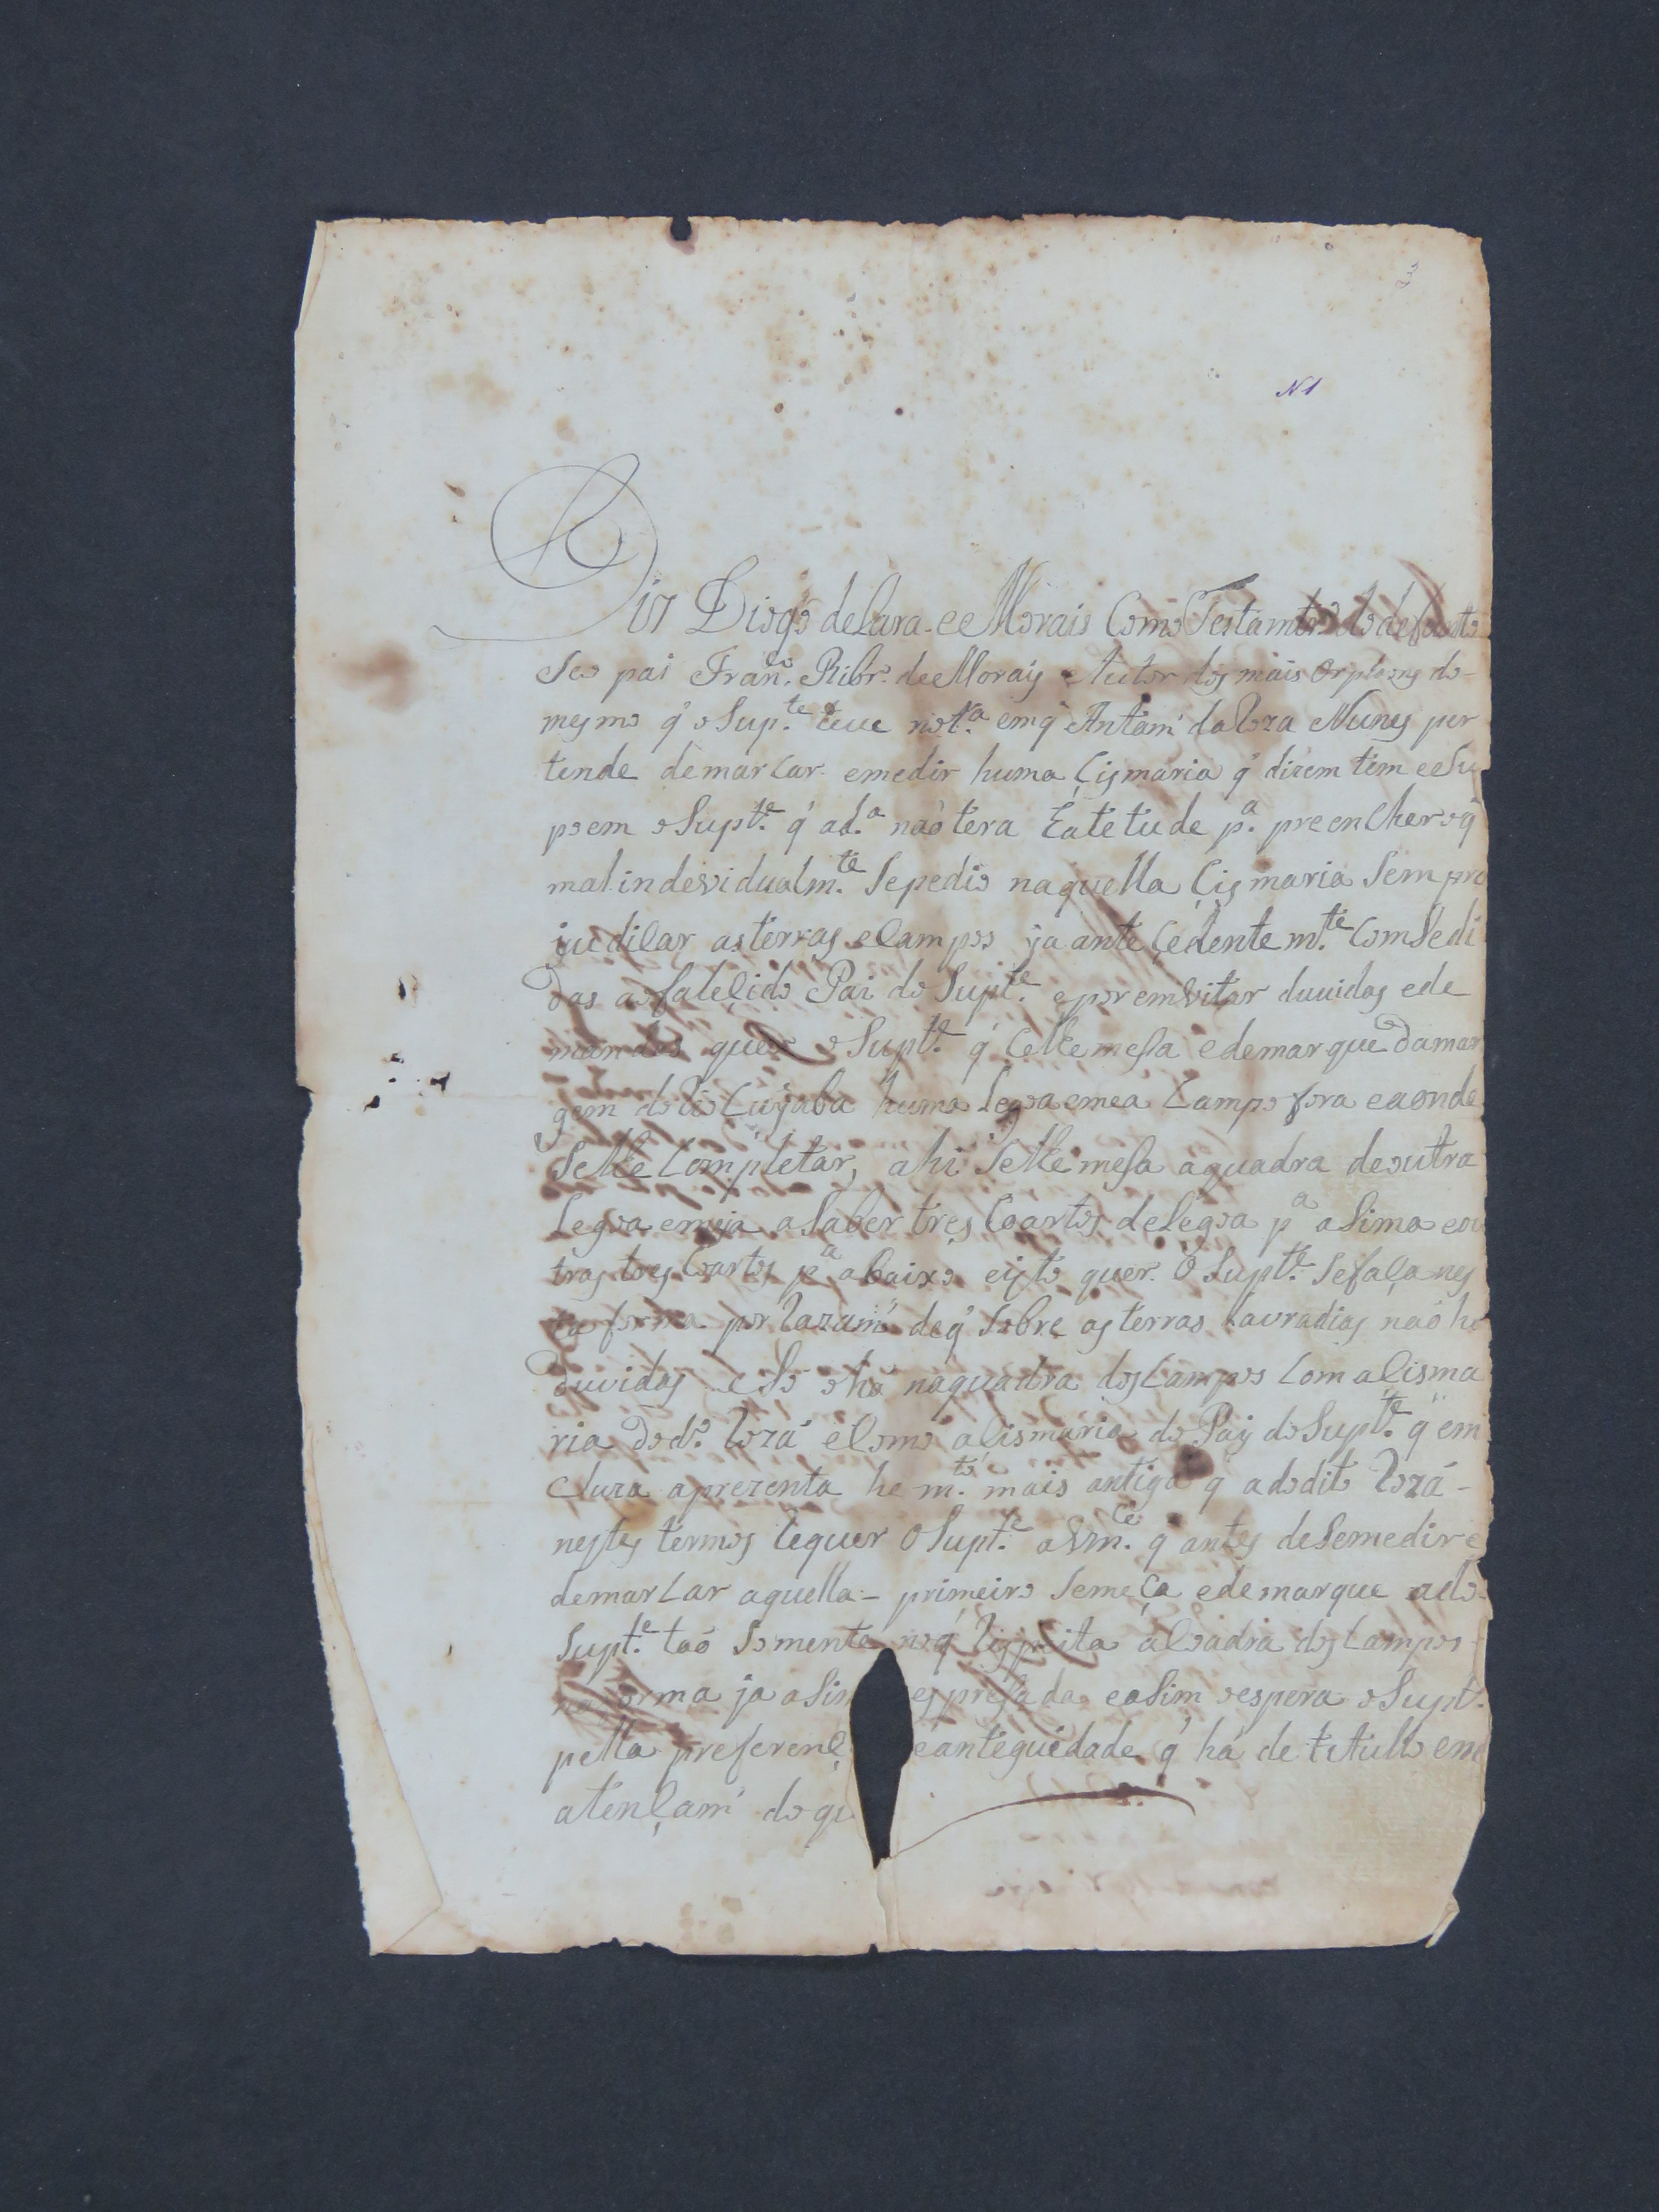 3
N 1
Diz Diogo de Lara e Morais Como Testamtr.o do defunto
Seo pai Fran.co Ribr.o de Morais e tutor dos mais orphons do
mesmo q' o Sup.te teve not.a em q' Antam' da Roza Nunes per
tende demarcar e medir huma Çismaria q' dizem tem e eSu
poem o Supt.e q' a d.a naõ tera Latetude p.a preencher o q'
mal indevidualm.te Se pedio naquella Çismaria Sem pre
judicar as terras e campos ja anteçedentem.te ComSedi
das ao faleçido Pai do Supt.e e por emvitar duuidas e de
mandas quer o Supt.e q' Çelle mesa e demarque da mar
gem do Rio Cuyaba huma Legoa e mea Campo fora e aonde
Selle Completar, ahi Selle mesa a quadra de outra
Legoa e meja a Saber tres Coartos de Legoa p.a a Sima e ou
tras tres Coartos p.a abaixo e isto quer O Supt.e Se faça nes
ta forma por Razam' de q' Sobre as terras Lavradias naõ ha
duvidas e So o ha na quadra dos Campos Com a Cisma
ria do d.o Roza e Como a Cismaria do Pay do Supt.e q' em
cluza aprezenta he m.to mais antiga q' a do dito Roza -
nestes termos Requer O Supt.e a Vm.ce q' antes de Se medir e
demarcar aquella - primeiro Se meça e demarque a do
Supt.e taõ Somente no q' Rispeita a Coadra dos Campos -
na forma ja aSim espresada e aSim o espera o Supt.e
pella preferenç e antiguidade q' há de titullo em
atençam' do qu